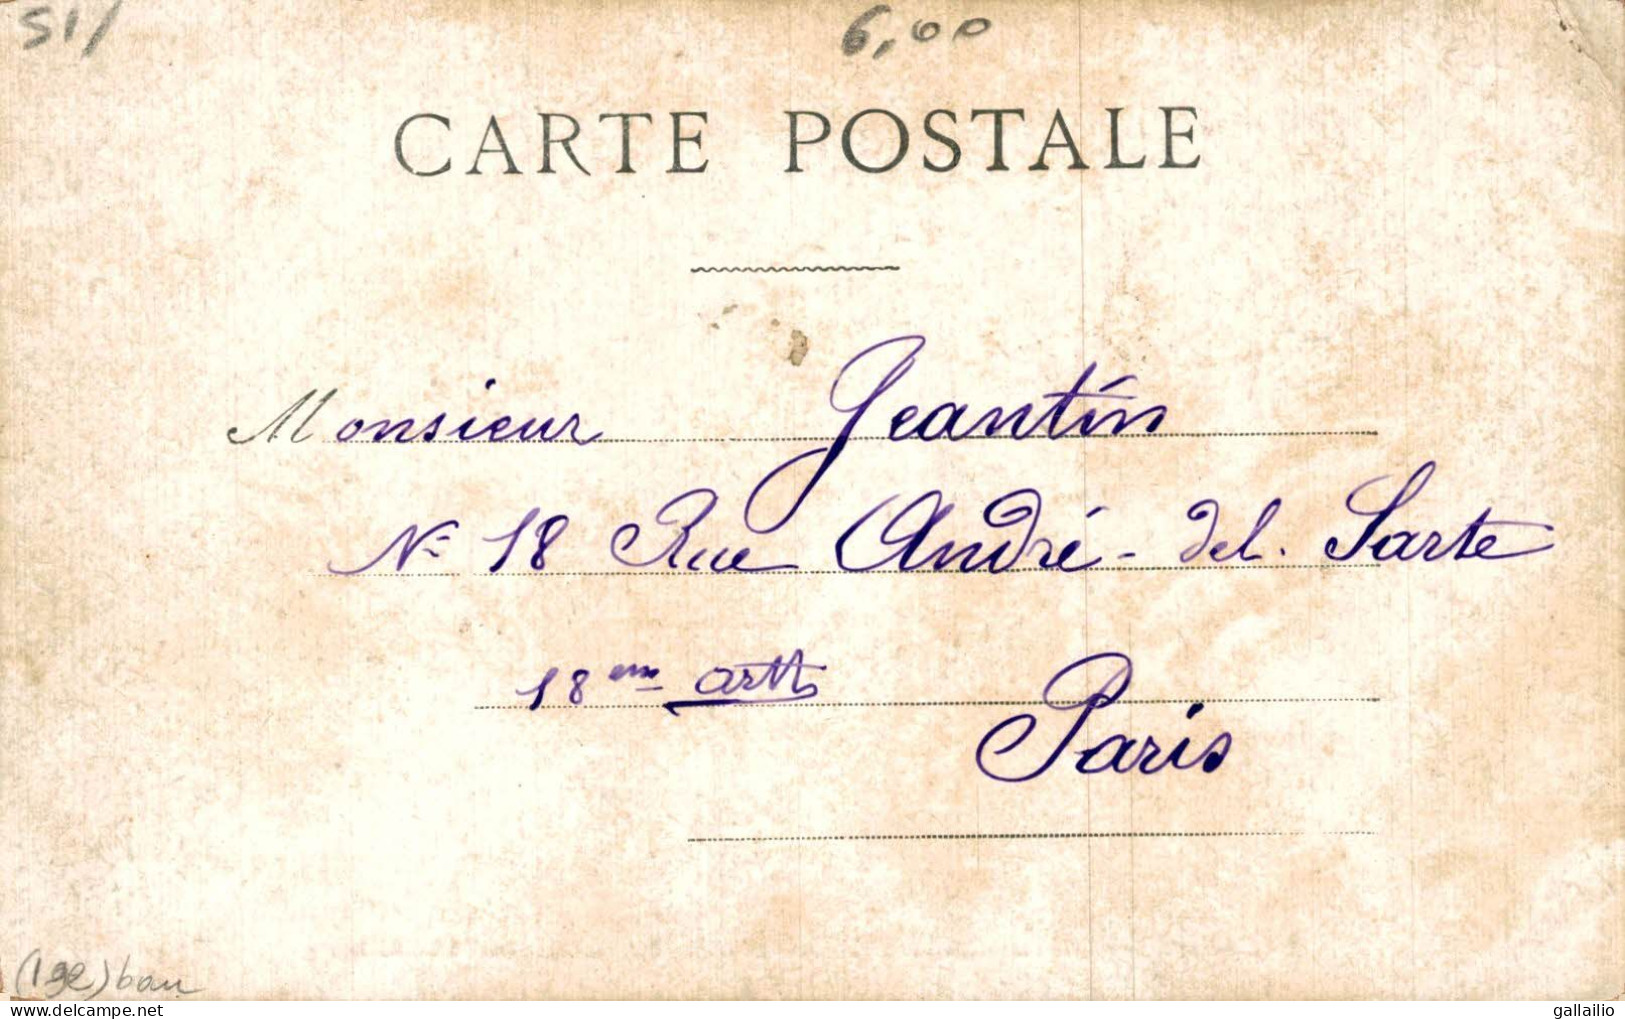 51/
6,00
CARTE POSTALE
Monsieur Jeantin
N= 18 Rue André-del. Sarte
18 eme artt
Paris
( ) bon
www.delcampe.net
gallailio